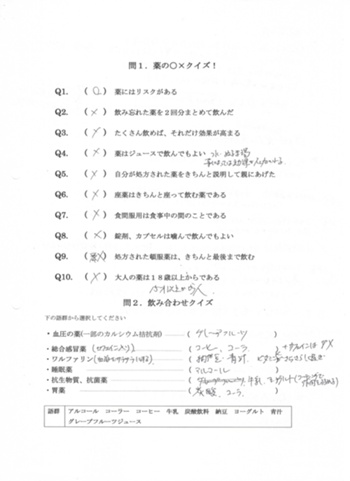 問1．薬の○×クイズ！
Q1. (○) 薬にはリスクがある
Q2. (×) 飲み忘れた薬を2回分まとめて飲んだ
Q3. (×) たくさん飲めば、それだけ効果が高まる
Q4. (×) 薬はジュースで飲んでもよい 水・ぬるま湯
Q5. (×) 自分が処方された薬をきちんと説明して親にあげた
Q6. (×) 座薬はきちんと座って飲む薬である
Q7. (×) 食間服用は食事中の間のことである
Q8. (×) 錠剤、カプセルは噛んで飲んでもよい
Q9. ( ) 処方された頓服薬は、きちんと最後まで飲む
Q10. (×)大人の薬は18歳以上からである
問2．飲み合わせクイズ
下の語群から選択してください
・血圧の薬(一部のカルシウム拮抗剤) (グレープフルーツ)
・総合感冒薬 (コーヒー、コーラ)
・ワルファリン (納豆 青汁
・睡眠薬 (アルコール)
・抗生物質、抗菌薬 牛乳
・胃薬 (炭酸、コーラ)
語群 アルコール コーラー コーヒー 牛乳 炭酸飲料 納豆 ヨーグルト 青汁
グレープフルーツジュース